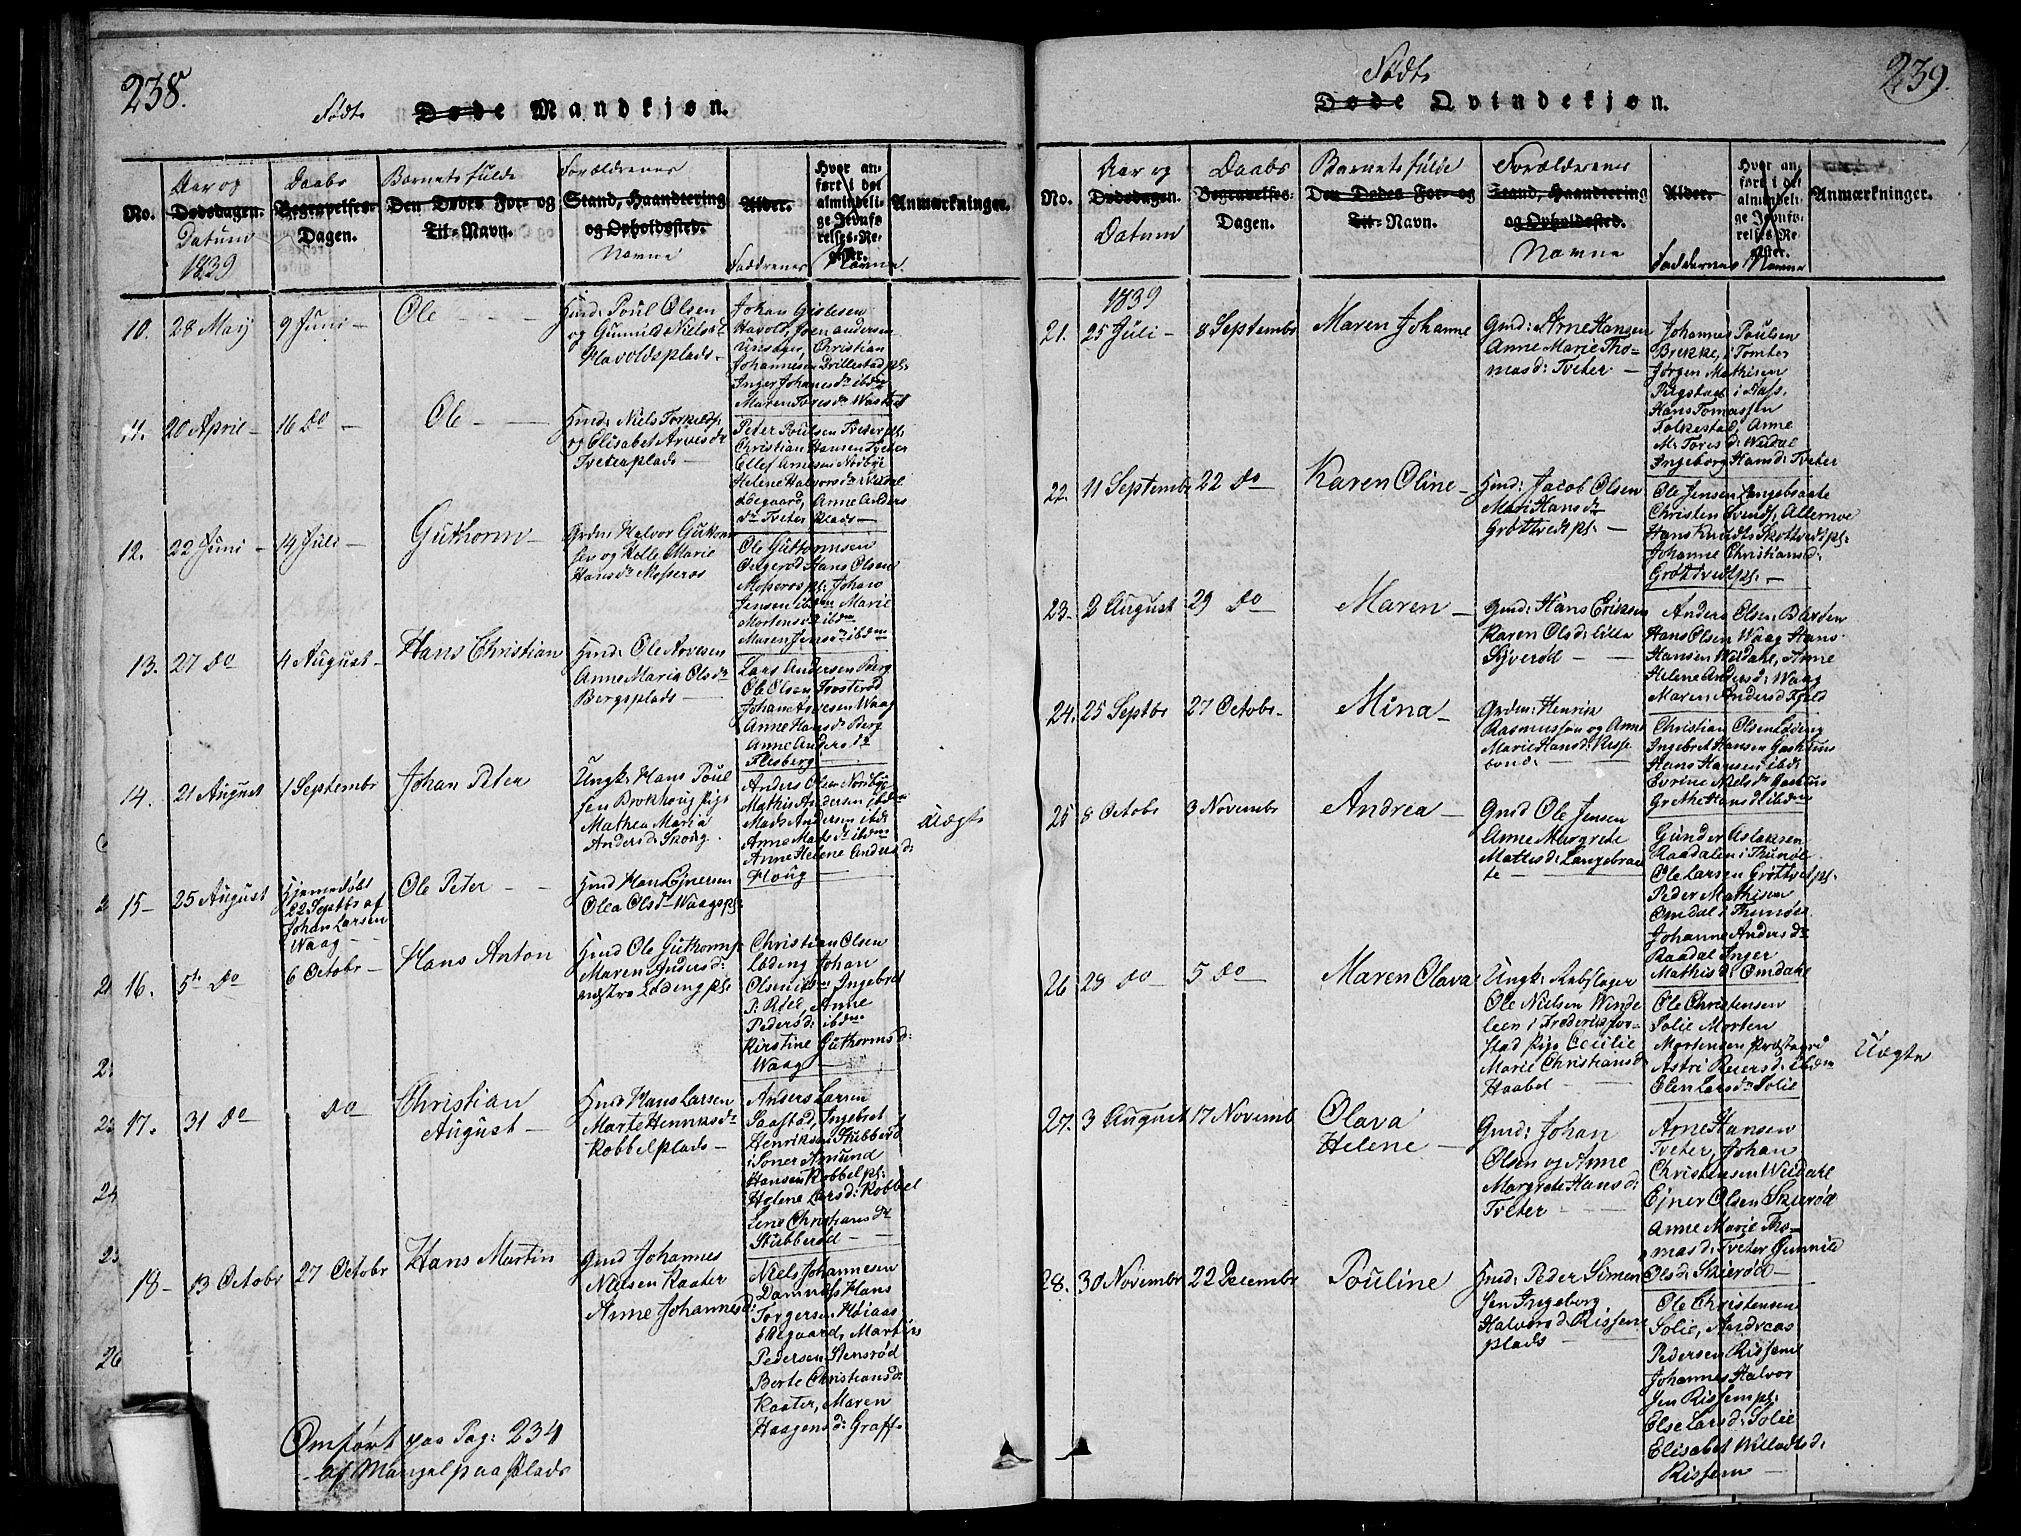 238.
Födte Døde Mandkjøn.
No.
Aar og
Dødsdagen.
Datum
1839
Daabs
Begravelses-
Dagen.
Barnets fulde
Den Dødes For- og
Til-Navn.
Forældrenes
Stand, Haandtering
og Opholdssted.
Navne
Alder.
Faddernes Navne
Hvor an-
ført i det
almindeli-
ge Jevnfø-
relses-Re-
gister.
Anmærkninger.
10. 28 Maij
9 Juni -
Ole
Huusm: Poul Olsen
og Gunild Nielsd:
Havoldsplads -
Johan Gislesen
Havold, Joen Andersen
Unsager, Christian
Johannesen Drillestad pl:
Inger Johanesdr ibdm
Maren Toresdr
11. 20 April -
16 do -
Ole
Huusm: Niels Torkelds:
og Elisabet Arvesdr
Tveterplads -
Peter Poulsen Tveter pl:
Christian Hansen Tveter
Ellef Arnesen Norbye
Helene Halvorsdr Wildal
Ødegaard, Anne Anders
dr Tveter Plads -
12. 22 Juni -
14 Juli -
Guthorm -
Grdm Halvor Guthorm
sen og Helle Marie
Hansdr Moseros
Ole Guthormsen
Hans Olsen
Moseros pl: Johan
Jensen ibdm Marie
Mortensdr ibdm
Maren Jensdr ibdm
13. 27 do
4 August -
Hans Christian
Huusm: Ole Arvesen
Anne Maria Olsdr
Bergsplads -
Lars Andersen Berg
Ole Olsen Torsterød
Johan Arvesen Waag
Anne Hansdr Berg
Anne Andersdr
Flesberg
14. 21 August
1 Septembr
Johan Peter
Ungk: Hans Poul
sen Brokhoug Pige
Mathea Maria
Andersd: Skoug.
Anders Olsen Norbye
Mathis Andersen ibdm
Mads Andersen ibd:
Anne Madsdr ibdm
Anne Helene Andersd:
Houg
Uægte
15 - 25 August
Hjemmedøbt
22 Septbr af
Johan Larsen
Waag -
Ole Peter
Huusm Hans Ejnersen
Olea Olsdr Waagspl:
16. 5te do
6 Octobr -
Hans Anton
Huusm Ole Guthorms:
Maren Andersd:
Løding pl:
Christian Olsen
Løding Johan
Olsen ibdm Ingebret
Anne
Pedersd: ibdm
Kirstine Guthormsd:
Waag
17. 31 do
do
Christian
August -
Huusm Hans Larsen
Marte Henriksdr
Kobbelplads -
Anders Larsen
Saastad, Ingebret
Henriksen Stubberød
i Soner Amund
Hansen Kobbel pl:
Helene Larsd: Kobbel
Lene Christiansdr
Stubberød
18 - 13 Octobr
27 Octobr
Hans Martin
Gmd Johannes
Nielsen Raater
Anne Johannesd:
Niels Johannesen
Damnæs Hans
Torgersen Høiaas
Ødegaard, Martin
Pedersen Stensrød
Berte Christiansd:
Raater, Maren
Haagensd: Graff -
Omført paa Pag: 234
af Mangel paa Plads
239.
Födte
Døde Qvindekjøn.
No.
Aar og
Dødsdagen.
Datum
Daabs
Begravelses-
Dagen.
Barnets fulde
Den Dødes For- og
Til-Navn.
Forældrenes
Stand, Haandtering
og Opholdssted.
Navne
Alder.
Faddernes Navne
Hvor an-
ført i det
almindeli-
ge Jevnfø-
relses-Re-
gister.
Anmærkninger.
1839
21. 25 Juli -
8 Septembr
Maren Johanne
Gmd: Arne Hansen
Anne Marie Tho-
masd: Tveter -
Johannes Poulsen
Brekke, i Tomter
Jørgen Mathisen
Hans Tomassen
Folkestad, Anne
M: Toresd: Wildal
Ingeborg Hansd: Tveter
22. 11 Septembr
22 do
Karen Oline -
Huusm: Jacob Olsen
Mari Hansdr
Grøttvedtpl: -
Ole Jensen Langebraate
Christen Svends: Allemoe
Hans Knudts: Skottvedtpl:
Johanne Christiansd:
Grøttvedtpl: -
23. 2 August
29 do
Maren -
Gmd: Hans Eriksen
Karen Olsd: Lille
Syverød -
Anders Olsen Buxten
Hans Olsen Waag Hans
Hansen Wildahl, Anne
Helene Andersd: Waag
Maren Andersd Fjeld
24. 25 Septbr
27 Octobr -
Mina -
Grdm: Henrik
Rasmussen og Anne
Marie Hansd:
Christian Olsen Løding
Ingebret Hansen Gashuus
Hans Hansen ibd:
Evrine Nielsdr Gashuus
Grethe Hansd ibdm
25 8 Octobr
3 Novembr
Andrea -
Gmd Ole Jensen
Anne Margrete
Mattesd: Langebraa
te -
Gunder Aslaksen
Raadalen i Thunøe
Ole Larsen Grøttvedpl:
Peder Mathisen
Omdal i Thunøe
Johanne Andersdr
Raadal Inger
Mathisd: Omdahl
26 28 do -
5 do
Maren Olava
Ungk: Rebslager
Ole Nielsen Winde
leen i Frederikshal-
stad Pige Cecilie
Marie Christiansd:
Haabel -
Ole Christensen
Solie Morten
Mortensen Præstegrd
Astri Reiersd: ibdm
Elen Larsdr Solie
Uægte
27. 3 August
17 Novemb
Olava
Helene -
Gmd: Johan
Olsen og Anne
Margrete Hansd:
Tveter -
Arne Hansen
Tveter, Johan
Christensen Wildahl
Ejner Olsen Skierød
Anne Marie Tho-
masd: Tveter Gunnild
Olsd: Skierød -
28. 30 Novembr
22 Decembr
Pouline
Huusm: Peder Simen
sen Ingeborg
Halvorsd Rissem
plads -
Ole Christensen
Solie, Andreas
Pedersen Rissem
Johannes Halvor
sen Rissempl:
Else Larsd: Solie
Elisabet Willadsd:
Rissem -